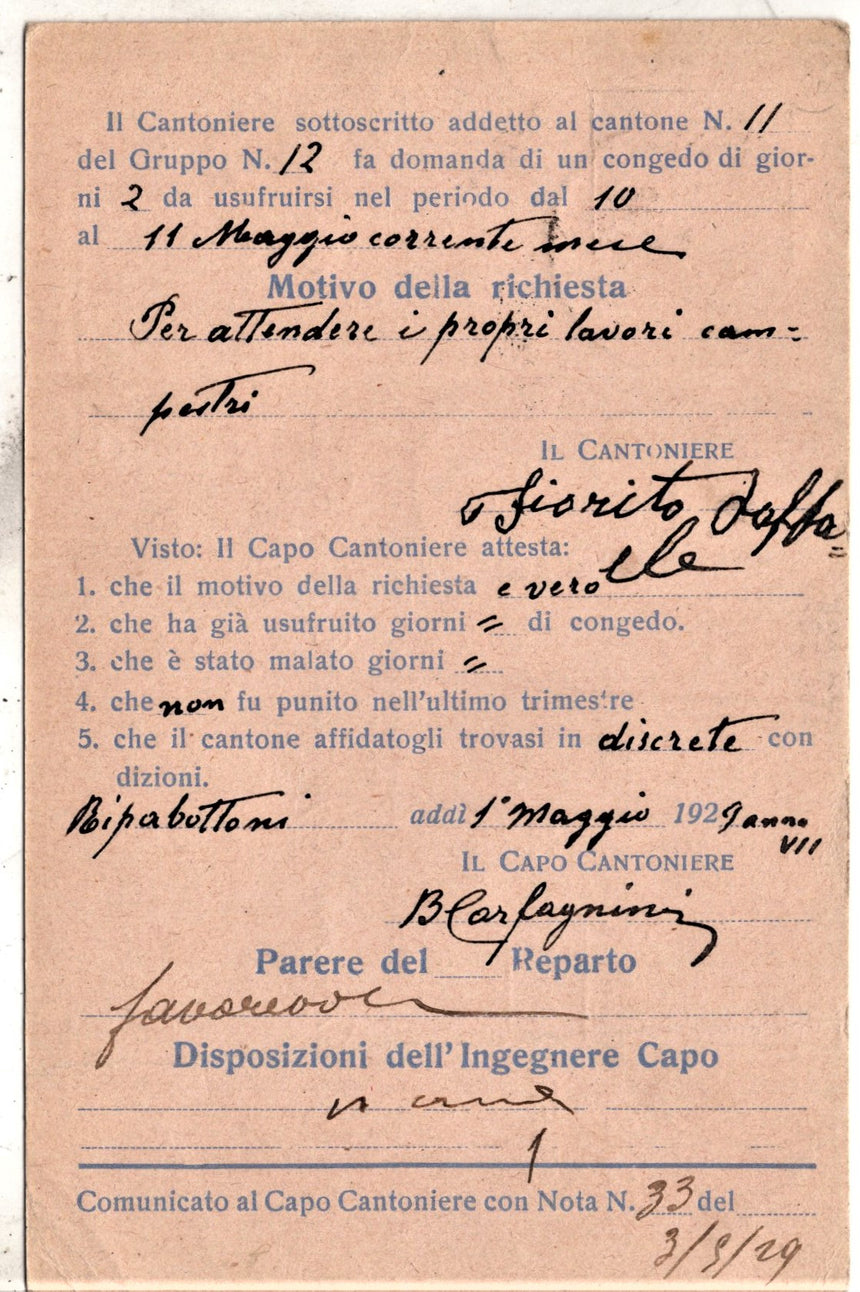 Il Cantoniere sottoscritto addetto al cantone N. 11
del Gruppo N. 12 fa domanda di un congedo di gior-
ni 2 da usufruirsi nel periodo dal 10
al 11 Maggio corrente mese
Motivo della richiesta
Per attendere i propri lavori cam-
pestri
IL CANTONIERE
Fiorito Raffa=
ele
Visto: Il Capo Cantoniere attesta:
1. che il motivo della richiesta e vero
2. che ha già usufruito giorni = di congedo.
3. che è stato malato giorni =
4. che non fu punito nell'ultimo trimestre
5. che il cantone affidatogli trovasi in discrete con
dizioni.
Ripabottoni addì 1° Maggio 1929 anno
VII
IL CAPO CANTONIERE
B Carfagnini
Parere del Reparto
favorevole
Disposizioni dell'Ingegnere Capo
Comunicato al Capo Cantoniere con Nota N. 33 del
3/5/29